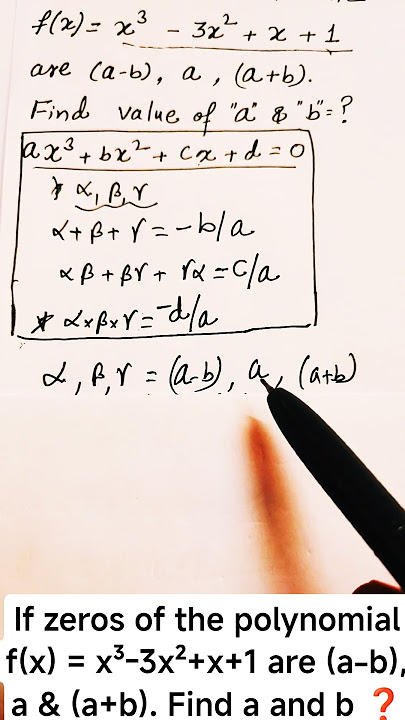 f(x)= x³ - 3x² + x + 1
are (a-b), a , (a+b).
Find value of "a" & "b"=?
ax³ + bx² + Cx + d = 0
* α, β, γ
α + β + γ = -b/a
αβ + βγ + γα = C/a
* α×β×γ = -d/a
α , β, γ = (a-b), a, (a+b)
If zeros of the polynomial
f(x) = x³-3x²+x+1 are (a-b),
a & (a+b). Find a and b ❓